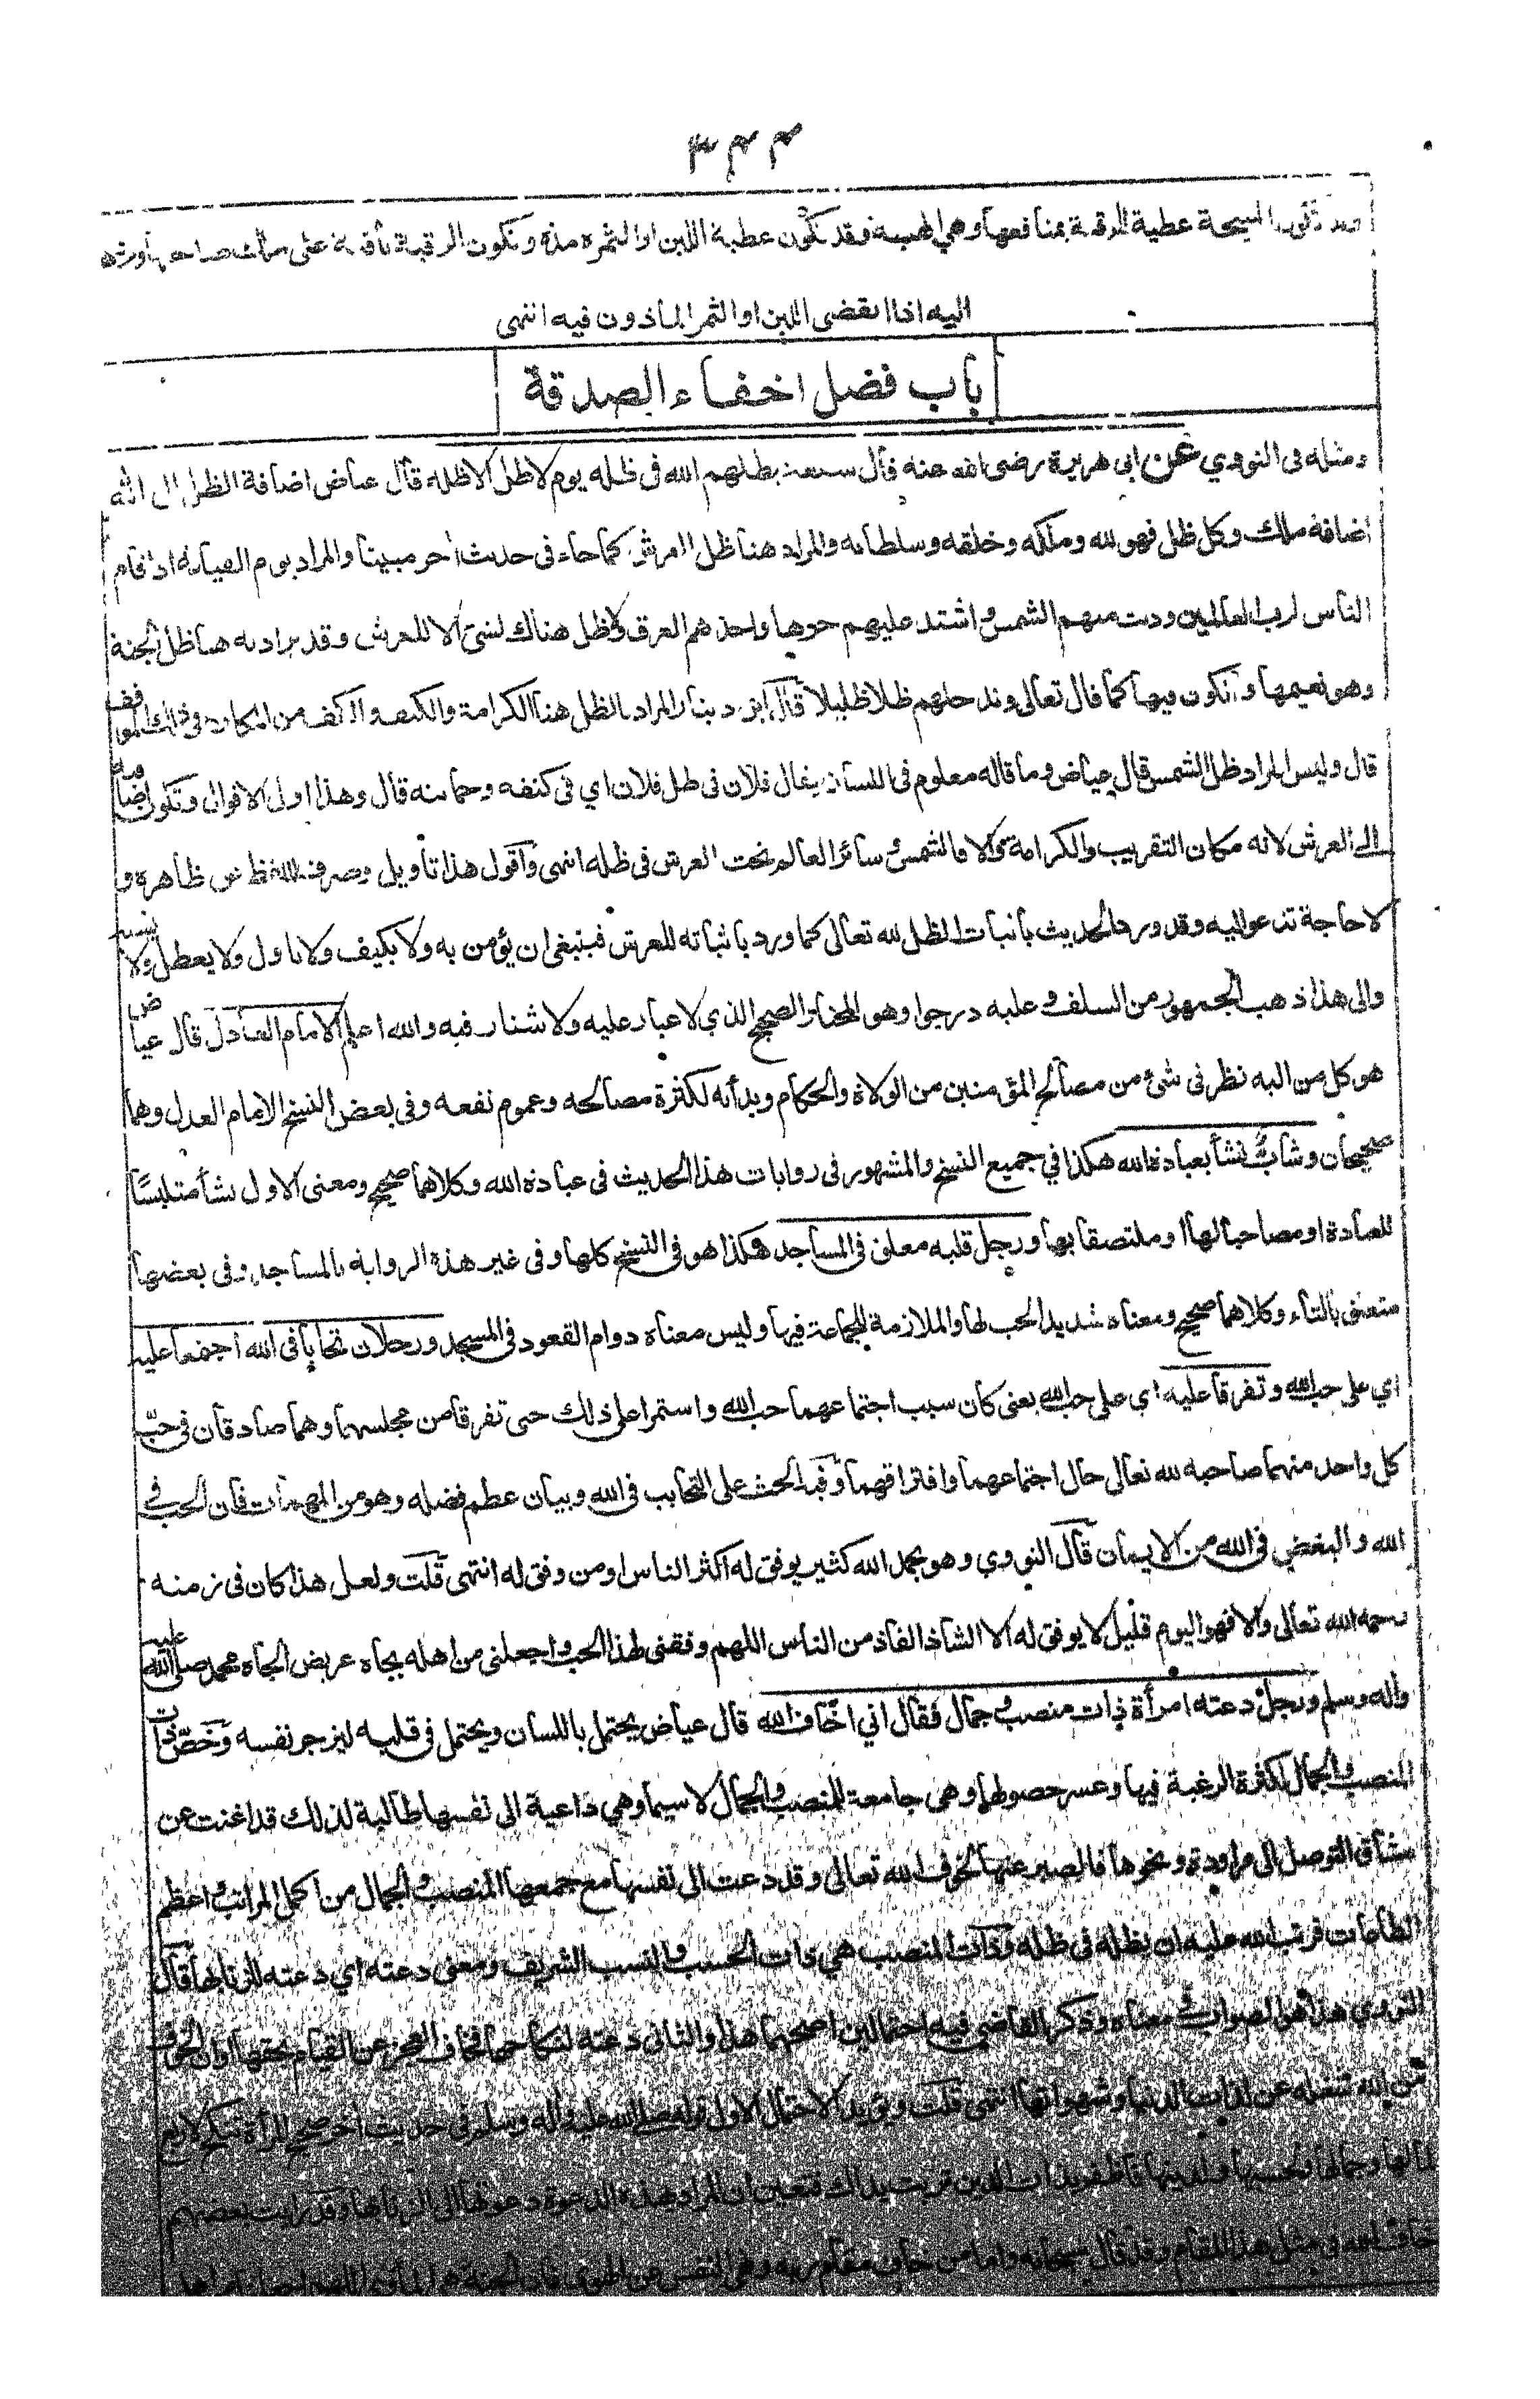 ٣٤٤
وقد تكون المنيحة عطية للرقبة بمنافعها وهي الهبة وقد تكون عطية اللبن او الثمرة مدة وتكون الرقبة باقية على ملك صاحبها ويردها
اليه اذا انقضى اللبن او الثمر الماذون فيه انتهى
باب فضل اخفاء الصدقة
ومثله فى النووي عن ابي هريرة رضى الله عنه قال سبعة يظلهم الله فى ظله يوم لا ظل الا ظله قال عياض اضافة الظل الى الله
اضافة ملك وكل ظل فهو لله وملكه وخلقه وسلطانه والمراد هنا ظل العرش كما جاء فى حديث اخر مبينا والمراد يوم القيامة اذا قام
الناس لرب العالمين ودنت منهم الشمس واشتد عليهم حرها واخذهم العرق ولا ظل هناك لشئ الا للعرش وقد يراد به هنا ظل الجنة
وهو نعيمها والكون فيها كما قال تعالى وندخلهم ظلا ظليلا قال ابن دينار المراد بالظل هنا الكرامة والكنف والكف من المكاره فى ذلك الموقف
قال وليس المراد ظل الشمس قال عياض وما قاله معلوم فى اللسان يقال فلان فى ظل فلان اي فى كنفه وحمايته قال وهذا اولى الاقوال وتكون اضافته
الى العرش لانه مكان التقريب والكرامة والا فالشمس وسائر العالم تحت العرش فى ظله انتهى واقول هذا تأويل وصرف للفظ عن ظاهره و
لا حاجة تدعو اليه وقد ورد الحديث باثبات الظل لله تعالى كما ورد باثباته للعرش فينبغى ان يؤمن به ولا يكيف ولا ياول ولا يعطل ولا يشبه
والى هذا ذهب الجمهور من السلف وعليه درجوا وهو المختار الصحيح الذي لا غبار عليه ولا شنار فيه والله اعلم الامام العادل قال عياض
هو كل من اليه نظر فى شئ من مصالح المؤمنين من الولاة والحكام وبدأ به لكثرة مصالحه وعموم نفعه وفى بعض النسخ الامام العدل وهما
صحيحان وشابٌّ نشأ بعبادة الله هكذا في جميع النسخ والمشهور فى روايات هذا الحديث فى عبادة الله وكلاهما صحيح ومعنى الاول نشأ متلبسًا
للعبادة او مصاحبا لها او ملتصقا بها ورجل قلبه معلق فى المساجد هكذا هو فى النسخ كلها وفى غير هذه الرواية بالمساجد وفى بعضها
متعلق بالتاء وكلاهما صحيح ومعناه شديد الحب لها والملازمة للجماعة فيها وليس معناه دوام القعود فى المسجد ورجلان تحابا فى الله اجتمعا عليه
اي على حب الله وتفرقا عليه اي على حب الله يعنى كان سبب اجتماعهما حب الله واستمرا على ذلك حتى تفرقا من مجلسهما وهما صادقان فى حبّ
كل واحد منهما صاحبه لله تعالى حال اجتماعهما وافتراقهما وفيه الحث على التحابب فى الله وبيان عظم فضله وهو من المهمات فان الحب فى
الله والبغض فى الله من الايمان قال النووي وهو بحمد الله كثير يوفق له اكثر الناس او من وفق له انتهى قلت ولعل هذا كان فى زمنه
رحمه الله تعالى والا فهو اليوم قليل لا يوفق له الا الشاذ الفاذ من الناس اللهم وفقنى لهذا الحب واجعلنى من اهله بجاه عريض الجاه محمد صلى الله عليه
واله وسلم ورجل دعته امرأة ذات منصب وجمال فقال اني اخاف الله قال عياض يحتمل باللسان ويحتمل فى قلبه ليزجر نفسه وخصّ ذات
المنصب والجمال لكثرة الرغبة فيها وعسر حصولها وهى جامعة للمنصب والجمال لا سيما وهي داعية الى نفسها طالبة لذلك قد اغنت عن
مشاق التوصل الى مراودة ونحوها فالصبر عنها لخوف الله تعالى وقد دعت الى نفسها مع جمعها المنصب والجمال من اكمل المراتب واعظم
الطاعات فرتب الله عليه ان يظله فى ظله وذات المنصب هي ذات الحسب والنسب الشريف ومعنى دعته اي دعته للزنا بها قال
النووي هذا هو الصواب فى معناه وذكر القاضي فيه احتمالين اصحهما هذا والثانى دعته لنكاحها فخاف العجز عن القيام بحقها او ان الخوف
من الله شغله عن لذات الدنيا وشهواتها انتهى قلت ويؤيد الاحتمال الاول قوله صلى الله عليه واله وسلم فى حديث اخر صحيح المرأة تنكح لاربع
لمالها وجمالها وحسبها ولدينها فاظفر بذات الدين تربت يداك فتعين ان المراد بهذه الدعوة دعوتها الى الزنا بها وقد رايت بعضهم
خاف الله فى مثل هذا المقام وقد قال سبحانه واما من خاف مقام ربه ونهى النفس عن الهوى فان الجنة هى المأوى